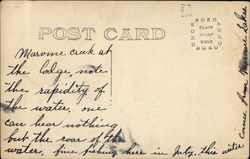 POST CARD
NOKO
PLACE
STAMP
HERE
NOKO
Marvine creek at
the lodge, note
the rapidity of
the water, one
can hear nothing
but the roar of the
water, fine fishing here in July, this water
comes from